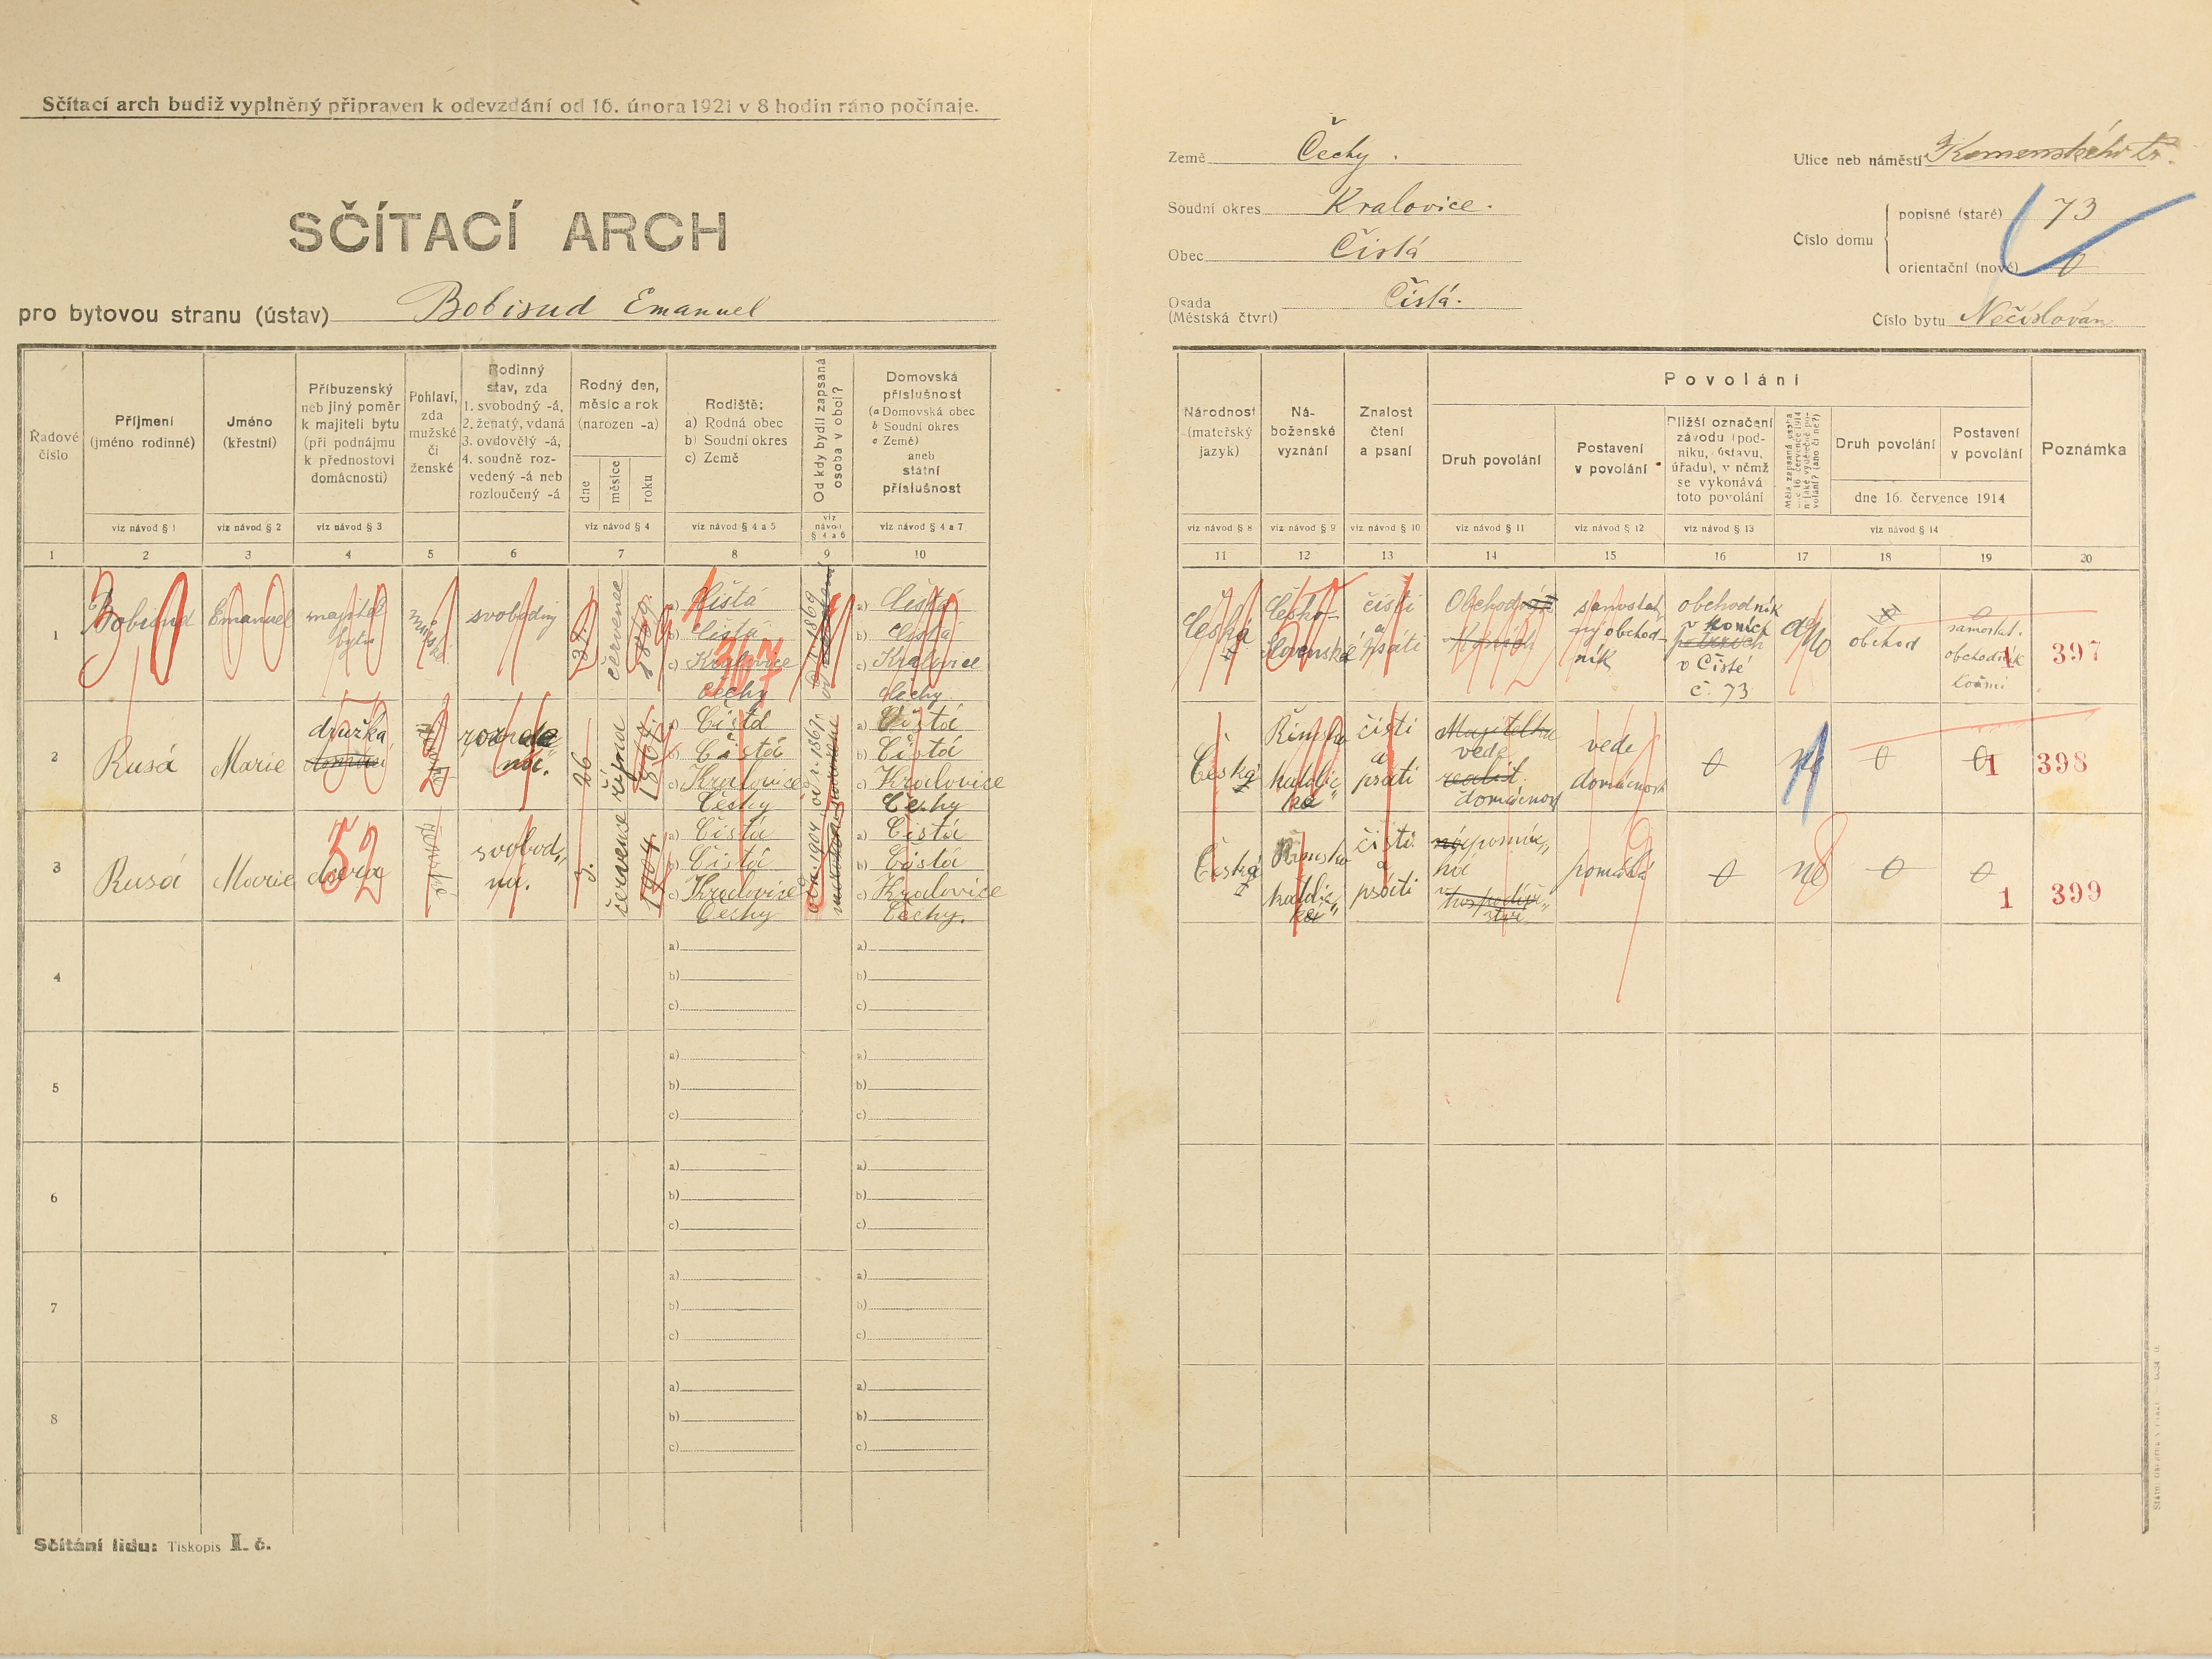 Sčítací arch budiž vyplněný připraven k odevzdání od 16. února 1921 v 8 hodin ráno počínaje.
SČÍTACÍ ARCH
pro bytovou stranu (ústav) Bobisud Emanuel
Země Čechy.
Soudní okres Kralovice.
Obec Čistá
Osada Čistá.
(Městská čtvrť)
Ulice neb náměstí Komenského tř.
Číslo domu
popisné (staré) 73
orientační (nové) 0
Číslo bytu Nečíslován
Řadové číslo
Příjmení (jméno rodinné)
Jméno (křestní)
Příbuzenský neb jiný poměr k majiteli bytu (při podnájmu k přednostovi domácnosti)
Pohlaví, zda mužské či ženské
Rodinný stav, zda 1. svobodný -á, 2. ženatý, vdaná 3. ovdovělý -á, 4. soudně rozvedený -á neb rozloučený -á
Rodný den, měsíc a rok (narozen -a)
dne
měsíce
roku
Rodiště:
a) Rodná obec
b) Soudní okres
c) Země
Od kdy bydlí zapsaná osoba v obci?
Domovská příslušnost
(a Domovská obec
b Soudní okres
c Země)
aneb
státní
příslušnost
viz návod § 1
viz návod § 2
viz návod § 3
viz návod § 4
viz návod § 4 a 5
viz návod § 4 a 6
viz návod § 4 a 7
1 2 3 4 5 6 7 8 9 10
Národnost (mateřský jazyk)
Náboženské vyznání
Znalost čtení a psaní
Povolání
Druh povolání
Postavení v povolání
Bližší označení závodu (podniku, ústavu, úřadu), v němž se vykonává toto povolání
Druh povolání
Postavení v povolání
dne 16. července 1914
Poznámka
viz návod § 8
viz návod § 9
viz návod § 10
viz návod § 11
viz návod § 12
viz návod § 13
viz návod § 14
11 12 13 14 15 16 17 18 19 20
1
Bobisud
Emanuel
majitel
bytu
mužské
svobodný
července
a) Čistá
b) Čistá
c) Kralovice
Čechy
367
a) Čistá
b) Čistá
c) Kralovice
Čechy
Česká
Česko-
Slovenské
čísti
a
psáti
samostat
ný obchod-
ník
obchodník
v koních
v Čisté
č. 73
obchod
samostat.
obchodník
koňmi
1
397
2
Rusá
Marie
družka
26
října
a) Čistá
b) Čistá
c) Kralovice
Čechy
a) Čistá
b) Čistá
c) Kralovice
Čechy
Česká
Římsko
katolic
ká
čísti
a
psáti
Majitelka
vede
domácnost
vede
domácnost
0
0
0
1
398
3
Rusá
Marie
dcera
52
ženské
svobod„
ná.
července
1904.
a) Čistá
b) Čistá
c) Kralovice
Čechy
a) Čistá
b) Čistá
c) Kralovice
Čechy.
Česká
Římsko
katolic„
ká
čísti
a
psáti
pomáhá
0
ne
0
0
1
399
4
a)
b)
c)
a)
b)
c)
5
a)
b)
c)
a)
b)
c)
6
a)
b)
c)
a)
b)
c)
7
a)
b)
c)
a)
b)
c)
8
a)
b)
c)
a)
b)
c)
Sčítání lidu: Tiskopis I. č.